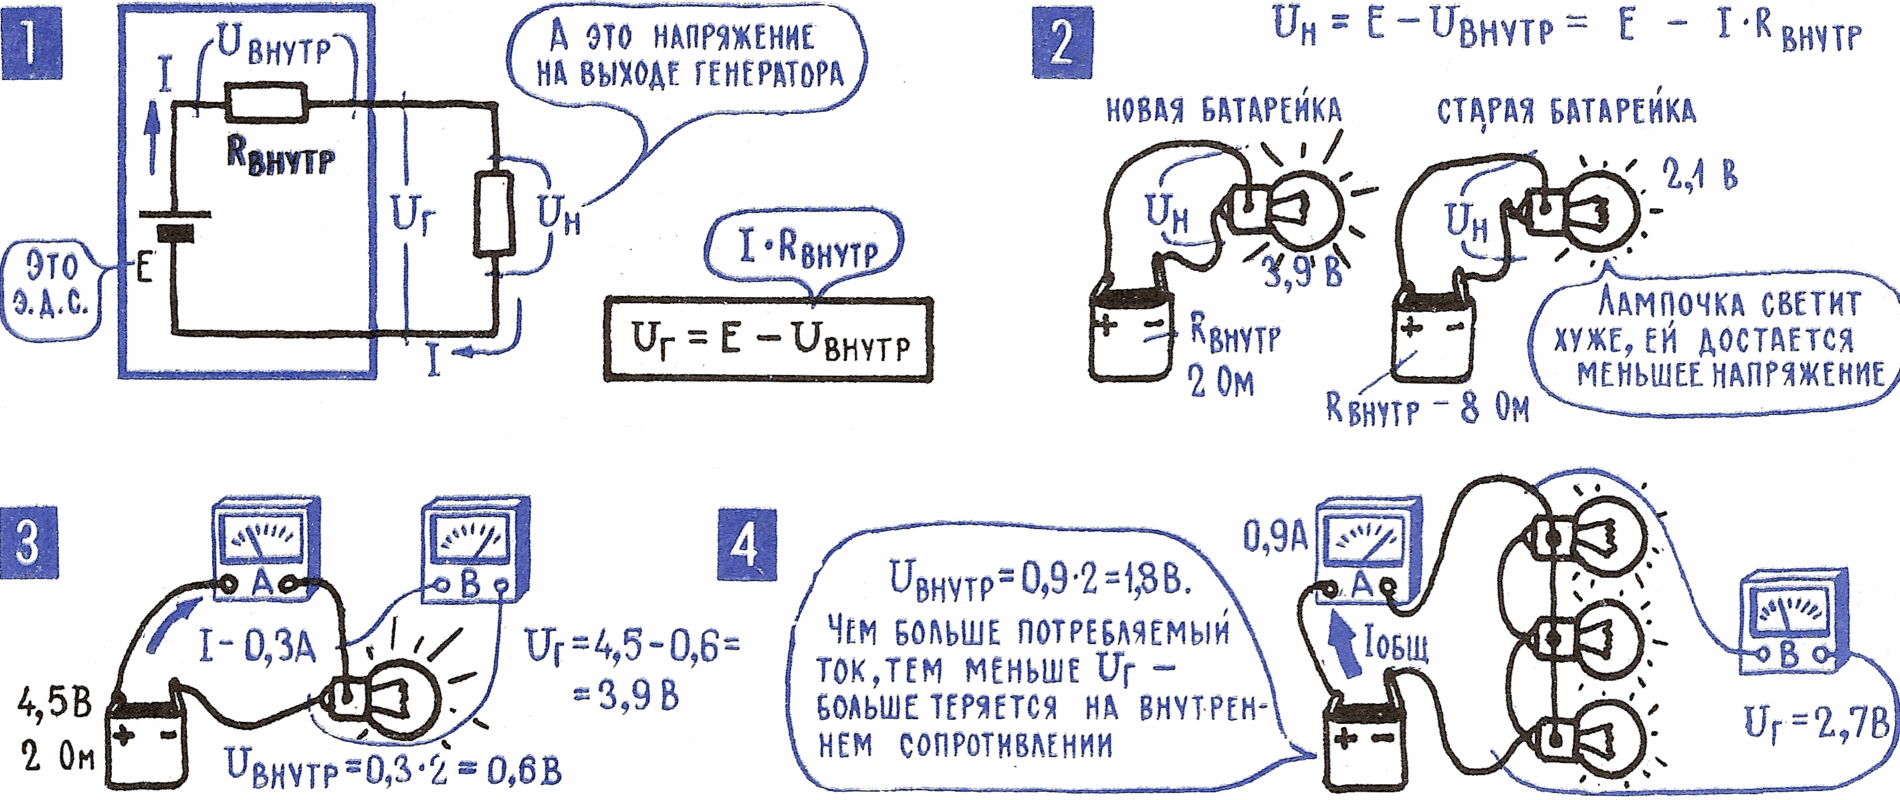 1
Uвнутр
I
Rвнутр
А ЭТО НАПРЯЖЕНИЕ
НА ВЫХОДЕ ГЕНЕРАТОРА
Uг
Uн
ЭТО
Э.Д.С.
E
I·Rвнутр
Uг = E − Uвнутр
I
2
Uн = E − Uвнутр = E − I·Rвнутр
НОВАЯ БАТАРЕЙКА
СТАРАЯ БАТАРЕЙКА
Uн
3,9 В
+ −
Rвнутр
2 Ом
2,1 В
Uн
+ −
Rвнутр − 8 Ом
ЛАМПОЧКА СВЕТИТ
ХУЖЕ, ЕЙ ДОСТАЕТСЯ
МЕНЬШЕЕ НАПРЯЖЕНИЕ
3
А
В
I − 0,3А
Uг = 4,5 − 0,6 =
= 3,9 В
4,5В
2 Ом
+ −
Uвнутр = 0,3·2 = 0,6В
4
Uвнутр = 0,9·2 = 1,8В.
ЧЕМ БОЛЬШЕ ПОТРЕБЛЯЕМЫЙ
ТОК, ТЕМ МЕНЬШЕ Uг −
БОЛЬШЕ ТЕРЯЕТСЯ НА ВНУТРЕН-
НЕМ СОПРОТИВЛЕНИИ
0,9А
А
Iобщ
+ −
В
Uг = 2,7В